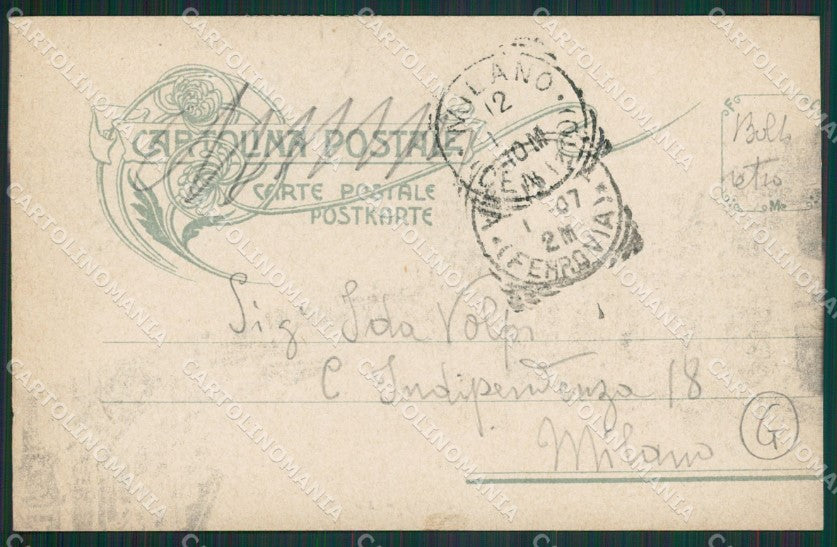 CARTOLINA POSTALE
CARTE POSTALE
POSTKARTE
MILANO
12
10 M
07
2M
(FERROVIA)
F
M
Boll
retro
Sig. Ida Volpi
C Indipendenza 18
Milano
G
CARTOLINOMANIA